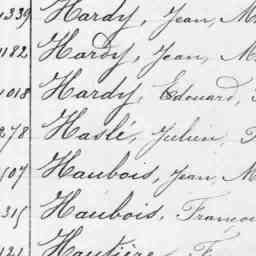 1339 Hardy, Jean, M
1182 Hardy, Jean, M
1018 Hardy, Edouard,
278 Haslé, Julien,
507 Haubois, Jean, M
315 Haubois, Françoi
121 Hautière, F